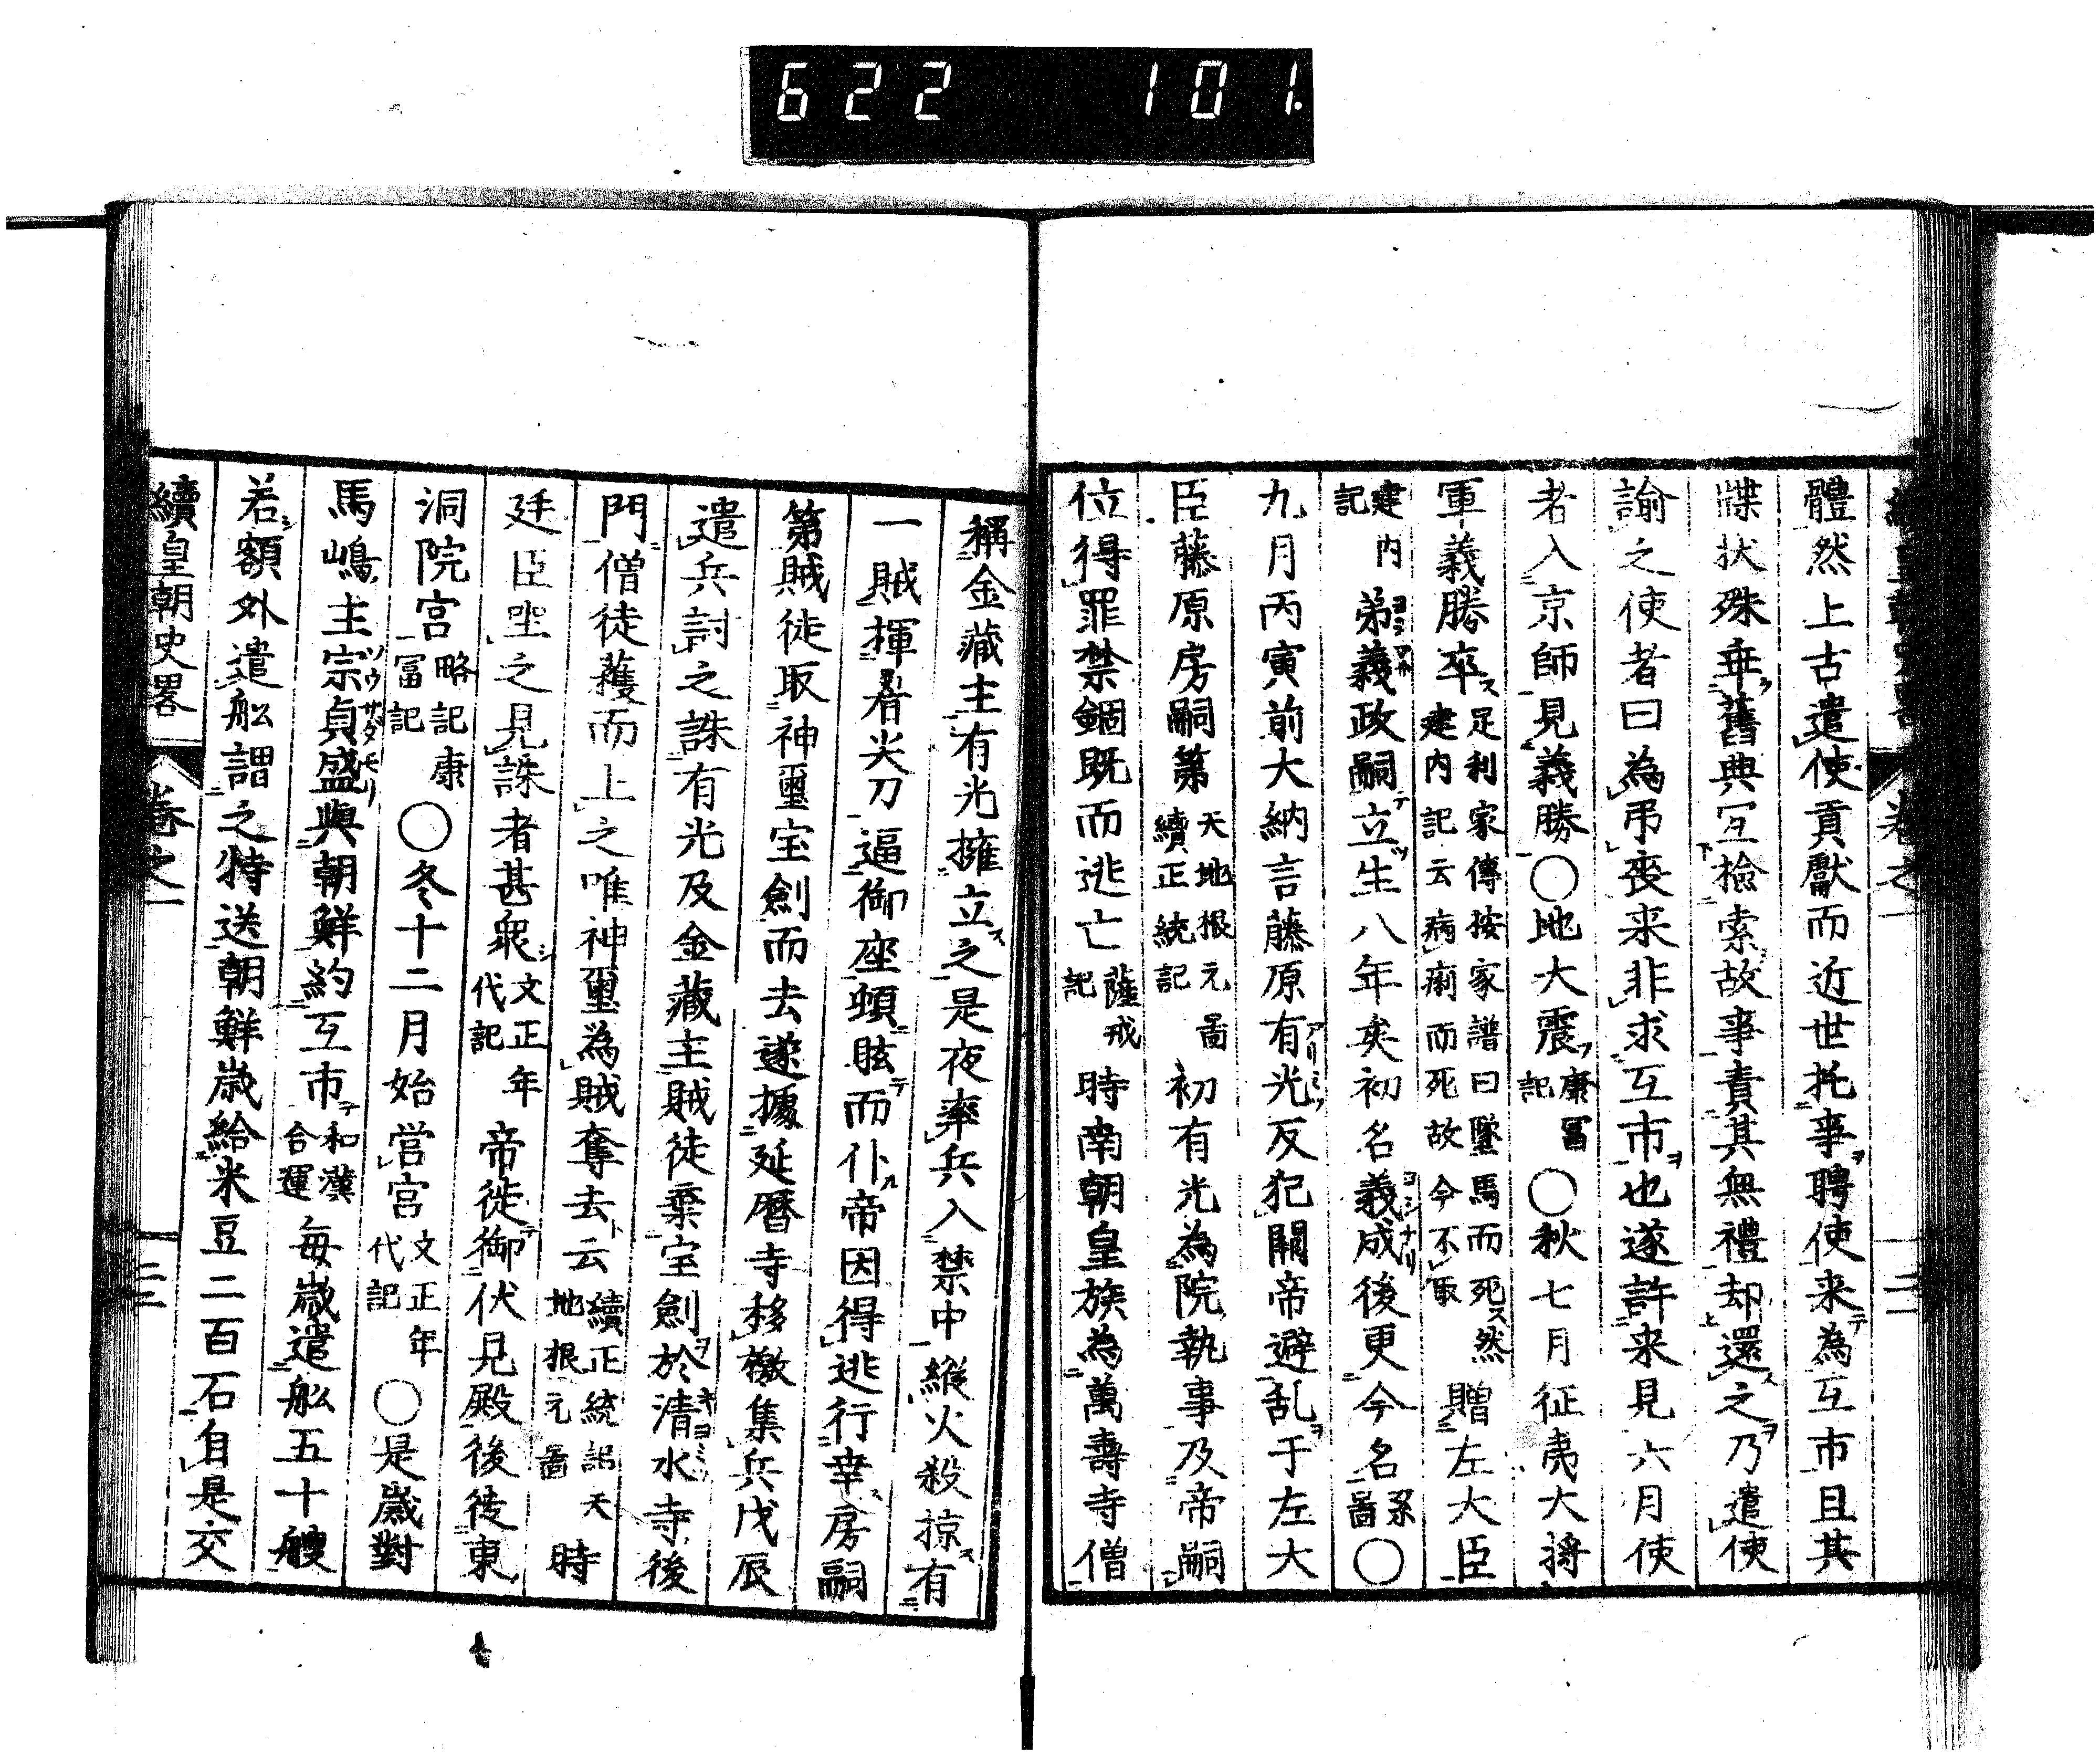 622 101.
體然上古遣使貢獻而近世托事聘使来為互市且其
牒状殊乖舊典宜撿索故事責其無禮却還之乃遣使
諭之使者曰為吊喪来非求互市也遂許来見六月使
者入京師見義勝〇地大震康冨記〇秋七月征夷大将
軍義勝卒足利家傳按家譜曰墜馬而死然建内記云病痢而死故今不取贈左大臣
建内記弟義政嗣立生八年矣初名義成後更今名系圖〇
九月丙寅前大納言藤原有光反犯闕帝避乱于左大
臣藤原房嗣第天地根元圖續正統記初有光為院執事及帝嗣
位得罪禁錮既而逃亡薩戒記時南朝皇族為萬壽寺僧
稱金藏主有光擁立之是夜率兵入禁中縱火殺掠有
一賊揮着尖刀逼御座頓眩而仆帝因得逃行幸房嗣
第賊徒取神璽宝劍而去遂據延暦寺移檄集兵戊辰
遣兵討之誅有光及金藏主賊徒棄宝劍於清水寺後
門僧徒獲而上之唯神璽為賊奪去云續正統記天地根元圖時
廷臣坐之見誅者甚衆文正年代記帝徙御伏見殿後徙東
洞院宮略記康冨記〇冬十二月始営宮文正年代記〇是歳對
馬嶋主宗貞盛與朝鮮約互市和漢合運毎歳遣舩五十艘
若額外遣舩謂之特送朝鮮歳給米豆二百石自是交
續皇朝史畧 卷之一 三